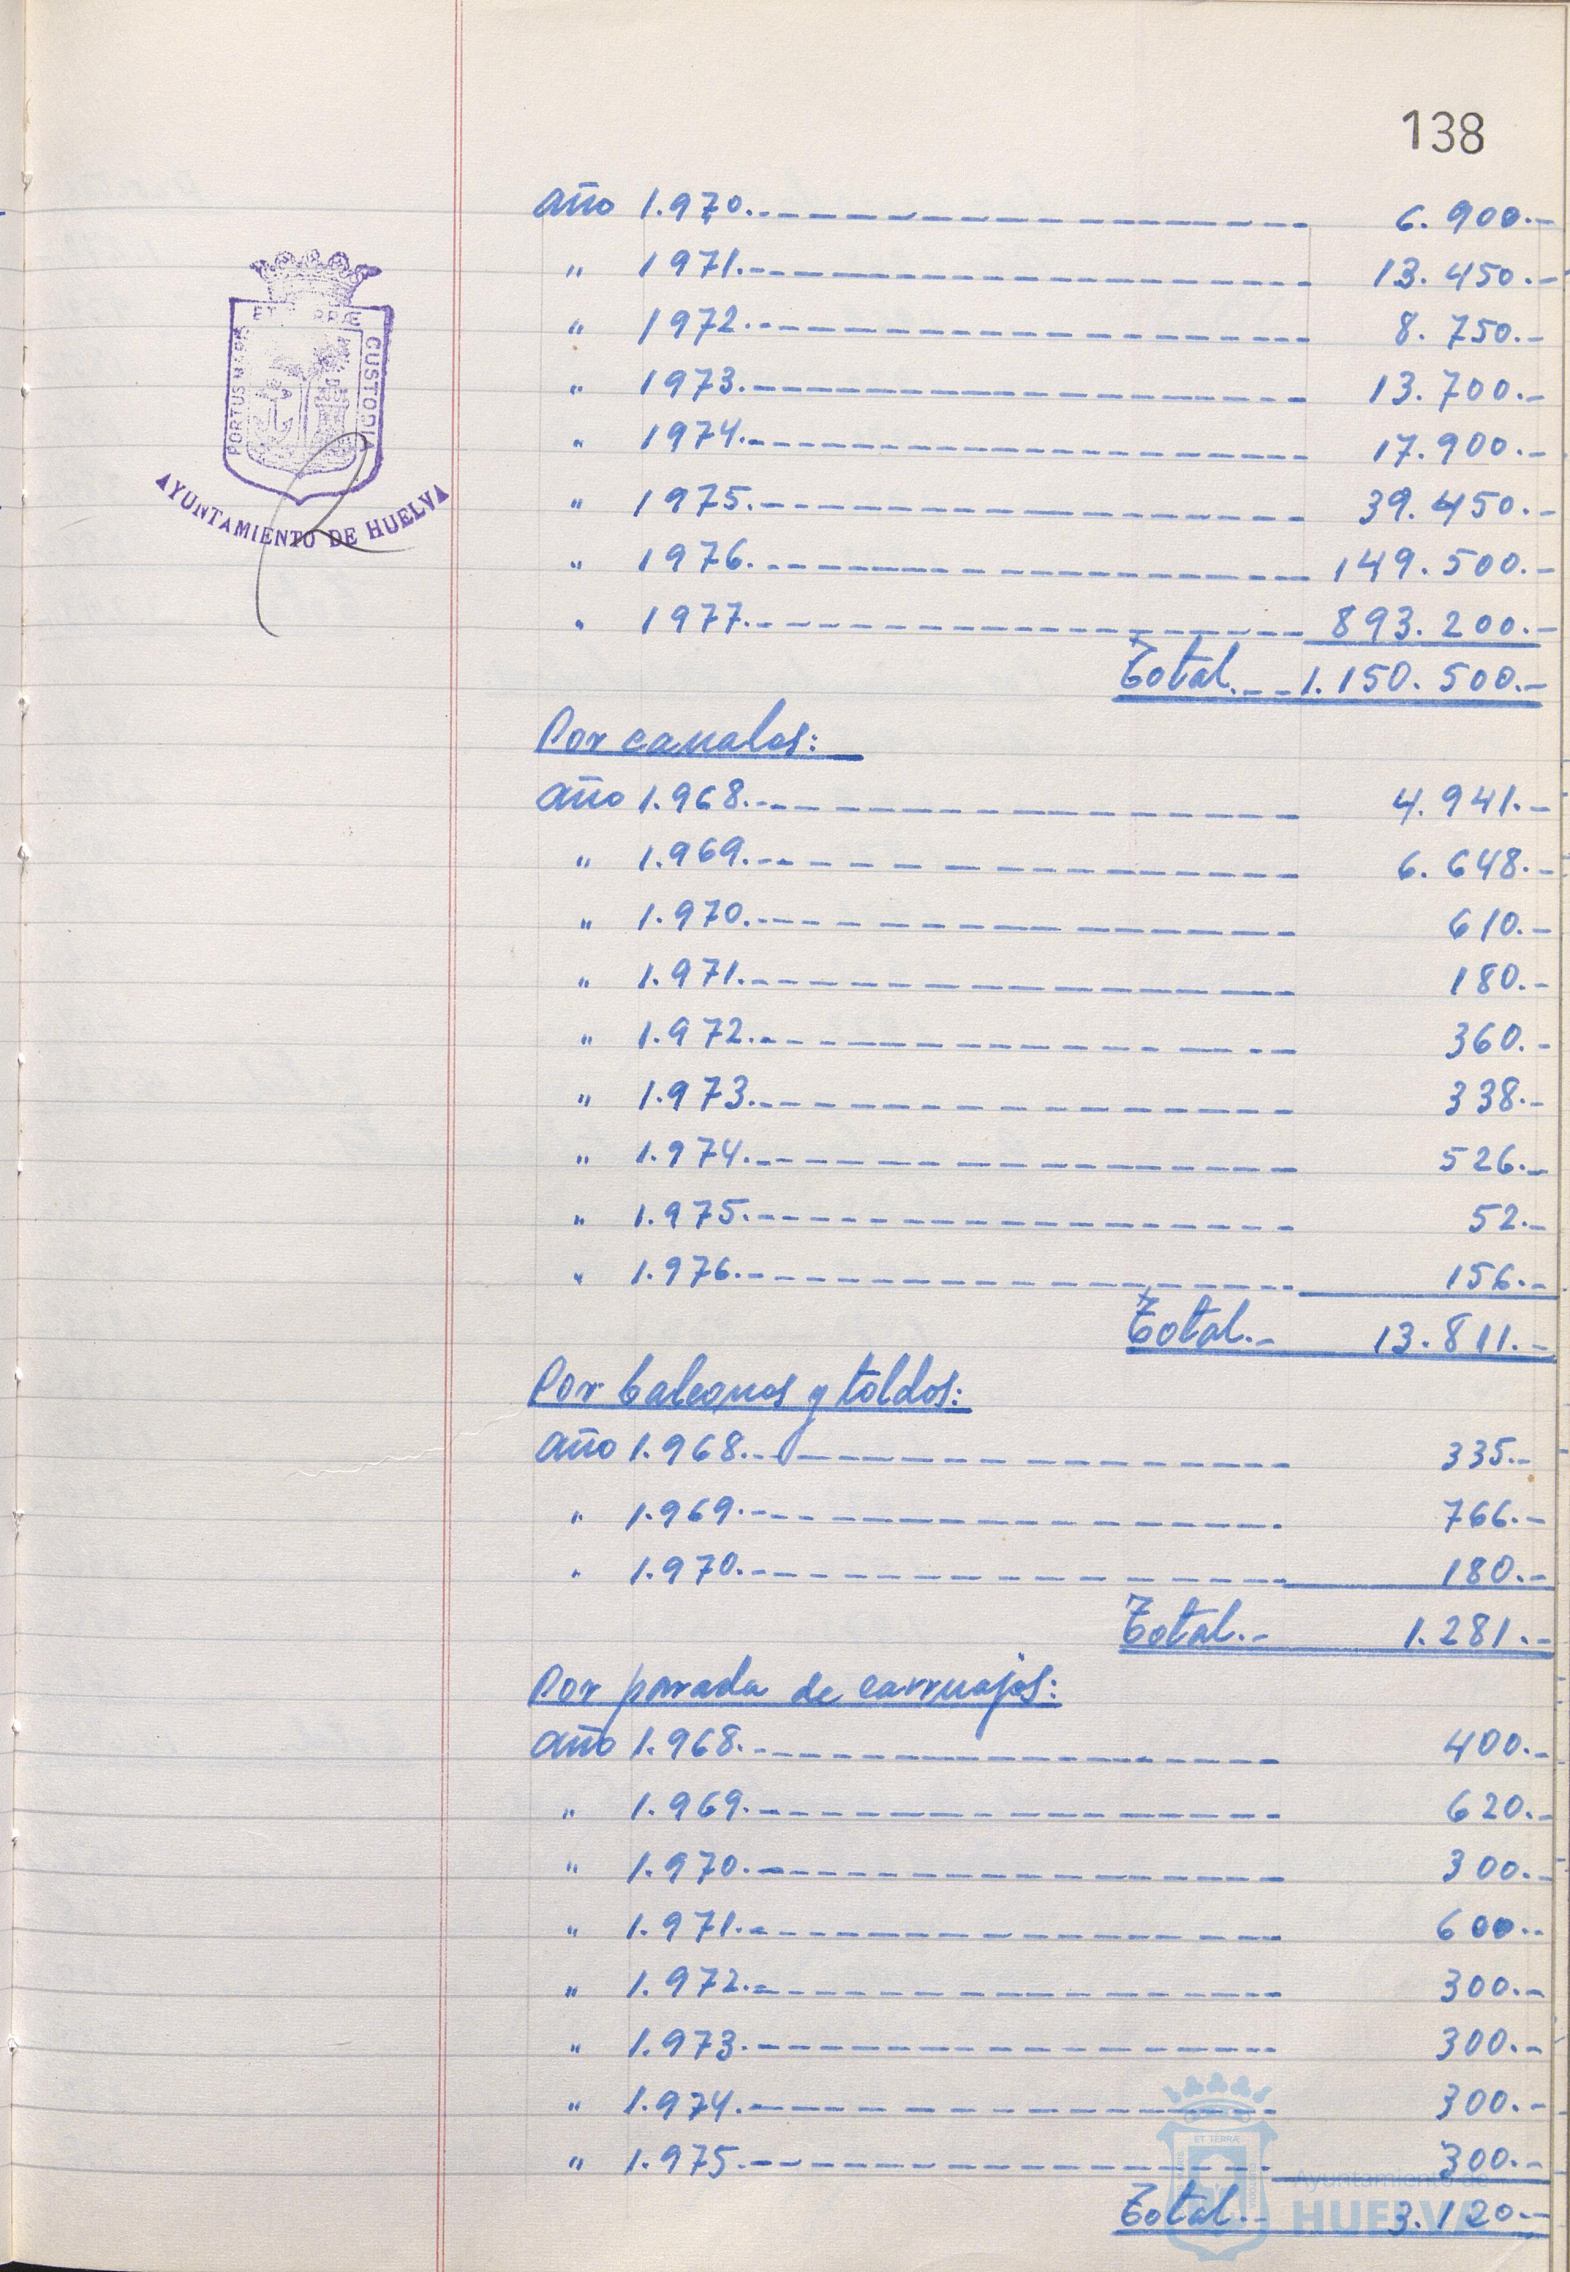 138
año 1.970.- 6.900.-
" 1971.- 13.450.-
" 1972.- 8.750.-
" 1973.- 13.700.-
" 1974.- 17.900.-
" 1975.- 39.450.-
" 1976.- 149.500.-
" 1977.- 893.200.-
Total.- 1.150.500.-
PORTUS MARIS ET TERRÆ CUSTODIA
AYUNTAMIENTO DE HUELVA
Por canales:
año 1.968.- 4.941.-
" 1.969.- 6.648.-
" 1.970.- 610.-
" 1.971.- 180.-
" 1.972.- 360.-
" 1.973.- 338.-
" 1.974.- 526.-
" 1.975.- 52.-
" 1.976.- 156.-
Total.- 13.811.-
Por balcones y toldos:
año 1.968.- 335.-
" 1.969.- 766.-
" 1.970.- 180.-
Total.- 1.281.-
Por parada de carruajes:
año 1.968.- 400.-
" 1.969.- 620.-
" 1.970.- 300.-
" 1.971.- 600.-
" 1.972.- 300.-
" 1.973.- 300.-
" 1.974.- 300.-
" 1.975.- 300.-
Total.- 3.120.-
ET TERRÆ
Ayuntamiento de
HUELVA